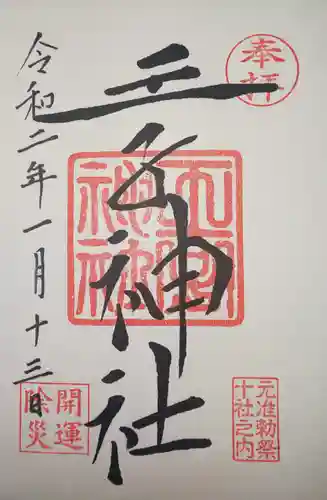 奉拝
王子神社
王子
神社
元准勅祭
十社之内
令和二年一月十三日
開運
除災